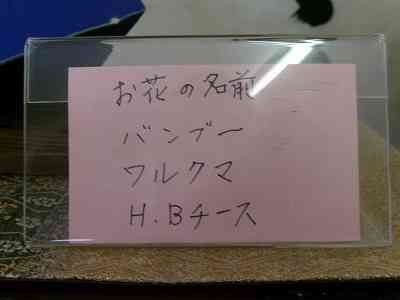 お花の名前
バンブー
ワルクマ
H.Bチース